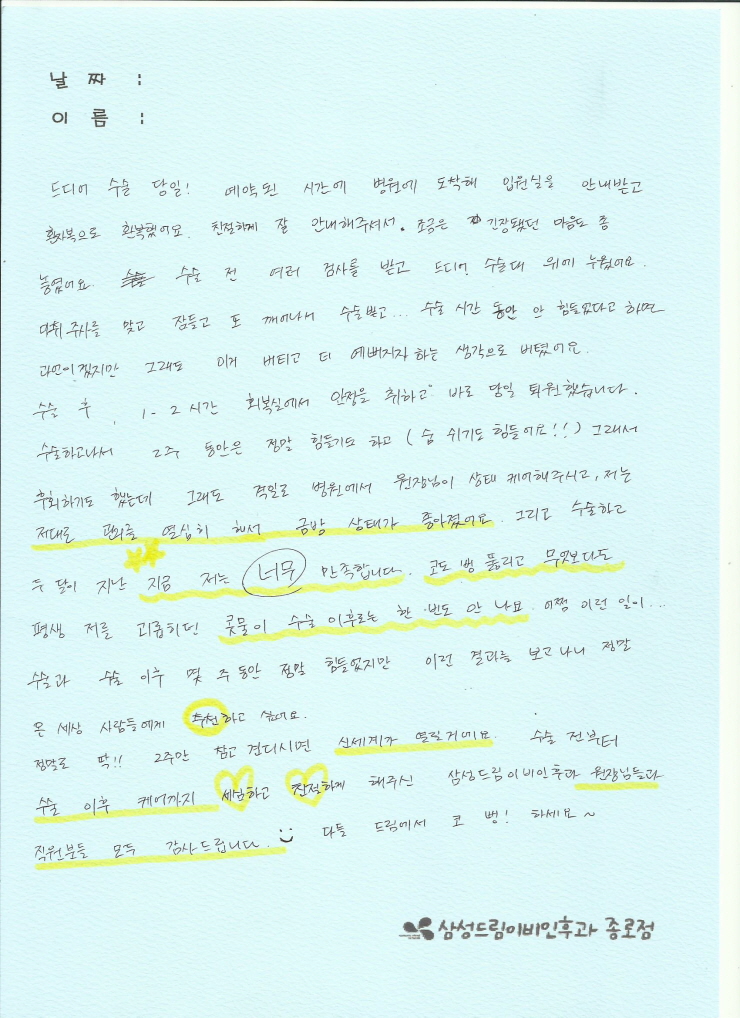 날 짜 :
이 름 :
드디어 수술 당일! 예약된 시간에 병원에 도착해 입원실을 안내받고
환자복으로 환복했어요. 친절하게 잘 안내해주셔서. 조금은 긴장됐던 마음도 좀
놓였어요. 수술 전 여러 검사를 받고 드디어 수술대 위에 누웠어요.
마취주사를 맞고 잠들고 또 깨어나서 수술받고... 수술 시간 동안 안 힘들었다고 하면
과언이겠지만 그래도 이거 버티고 더 예뻐지자 하는 생각으로 버텼어요.
수술 후, 1-2시간 회복실에서 안정을 취하고 바로 당일 퇴원했습니다.
수술하고나서 2주 동안은 정말 힘들기도 하고 (숨 쉬기도 힘들어요!!) 그래서
후회하기도 했는데 그래도 격일로 병원에서 원장님이 상태 케어해주시고, 저는
저대로 관리를 열심히 해서 금방 상태가 좋아졌어요. 그리고 수술하고
두 달이 지난 지금 저는 너무 만족합니다. 코도 뻥 뚫리고 무엇보다도
평생 저를 괴롭히던 콧물이 수술 이후로는 한 번도 안 나요. 어쩜 이런 일이...
수술과 수술 이후 몇 주 동안 정말 힘들었지만 이런 결과를 보고 나니 정말
온 세상 사람들에게 추천하고 싶어요.
정말로 딱!! 2주만 참고 견디시면 신세계가 열릴거예요. 수술 전부터
수술 이후 케어까지 세심하고 친절하게 해주신 삼성드림이비인후과 원장님들과
직원분들 모두 감사드립니다. 다들 드림에서 코 뻥! 하세요~
삼성드림이비인후과 종로점